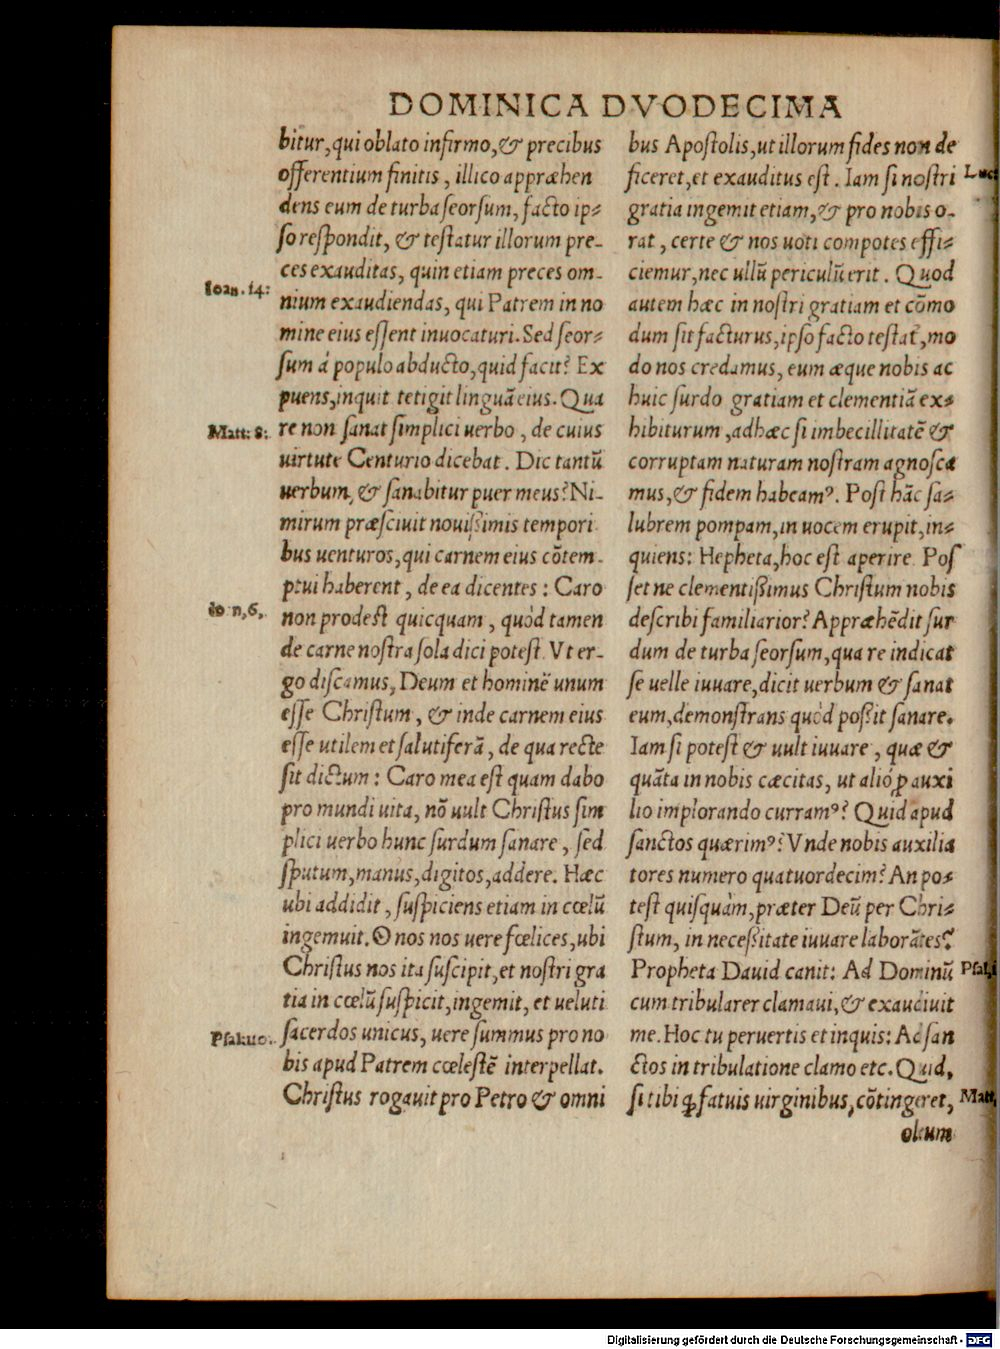 DOMINICA DVODECIMA
bitur, qui oblato infirmo, & precibus
offerentium finitis, illico appræhen
dens eum de turba ſeorſum, facto ip⸗
ſo reſpondit, & teſtatur illorum pre-
ces exauditas, quin etiam preces om-
Ioan. 14:
nium exaudiendas, qui Patrem in no
mine eius eſſent inuocaturi. Sed ſeor⸗
ſum á populo abducto, quid facit? Ex
puens, inquit tetigit linguā eius. Qua
Matt: 8:
re non ſanat ſimplici uerbo, de cuius
uirtute Centurio dicebat. Dic tantū
uerbum, & ſanabitur puer meus? Ni-
mirum præſciuit nouißimis tempori
bus uenturos, qui carnem eius cōtem-
ptui haberent, de ea dicentes: Caro
non prodeſt quicquam, quòd tamen
de carne noſtra ſola dici poteſt. Vt er-
go diſcamus, Deum et hominē unum
eſſe Chriſtum, & inde carnem eius
eſſe utilem et ſalutiferā, de qua recte
ſit dictum: Caro mea eſt quam dabo
pro mundi uita, nō uult Chriſtus ſim
plici uerbo hunc ſurdum ſanare, ſed
ſputum, manus, digitos, addere. Hæc
ubi addidit, ſuſpiciens etiam in cœlū
ingemuit. O nos nos uere fœlices, ubi
Chriſtus nos ita ſuſcipit, et noſtri gra
tia in cœlū ſuſpicit, ingemit, et ueluti
ſacerdos unicus, uere ſummus pro no
bis apud Patrem cœleſtē interpellat.
Chriſtus rogauit pro Petro & omni
bus Apoſtolis, ut illorum fides non de
ficeret, et exauditus eſt. Iam ſi noſtri
Luc
gratia ingemit etiam, & pro nobis o-
rat, certe & nos uoti compotes effi⸗
ciemur, nec ullū periculū erit. Quod
autem hæc in noſtri gratiam et cōmo
dum ſit facturus, ipſo facto teſtat᷑, mo
do nos credamus, eum æque nobis ac
huic ſurdo gratiam et clementiā ex⸗
hibiturum, ad hæc ſi imbecillitatē &
corruptam naturam noſtram agnoſca
mus, & fidem habeamꝰ. Poſt hāc ſa⸗
lubrem pompam, in uocem erupit, in⸗
quiens: Hepheta, hoc eſt aperire. Poſ
ſet ne clementißimus Chriſtum nobis
deſcribi familiarior? Appræhēdit ſur
dum de turba ſeorſum, qua re indicat
ſe uelle iuuare, dicit uerbum & ſanat
eum, demonſtrans quòd poßit ſanare.
Iam ſi poteſt & uult iuuare, quæ &
quāta in nobis cæcitas, ut alió ꝓ auxi
lio implorando curramꝰ? Quid apud
ſanctos quærimꝰ? Vnde nobis auxilia
tores numero quatuordecim? An po⸗
teſt quiſquàm, præter Deū per Chri⸗
ſtum, in neceßitate iuuare laborātes?
Propheta Dauid canit: Ad Dominū
Pſal,
cum tribularer clamaui, & exaudiuit
me. Hoc tu peruertis et inquis: Ad ſan
ctos in tribulatione clamo etc. Quid,
ſi tibi ꝙ fatuis uirginibus, cōtingeret,
Matt,
oleum